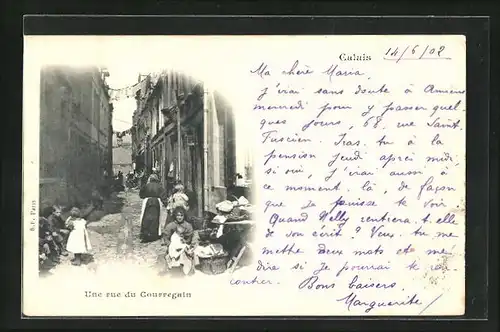 Calais 14/6/02
Ma chère Maria,
j'irai sans doute à Amiens
mercredi pour y passer quel-
ques jours, 68, rue Saint
Fuscien. Iras-tu à la
pension jeudi après midi,
si oui, j'irai aussi à
ce moment-là, de façon
que je puisse te voir
Quand Nelly rentrera-t-elle,
te l'écrit? Veux-tu me
mettre deux mots et me
dire si je pourrai te ren-
contrer. Bons baisers.
Marguerite
B.F. Paris
Une rue du Courregain